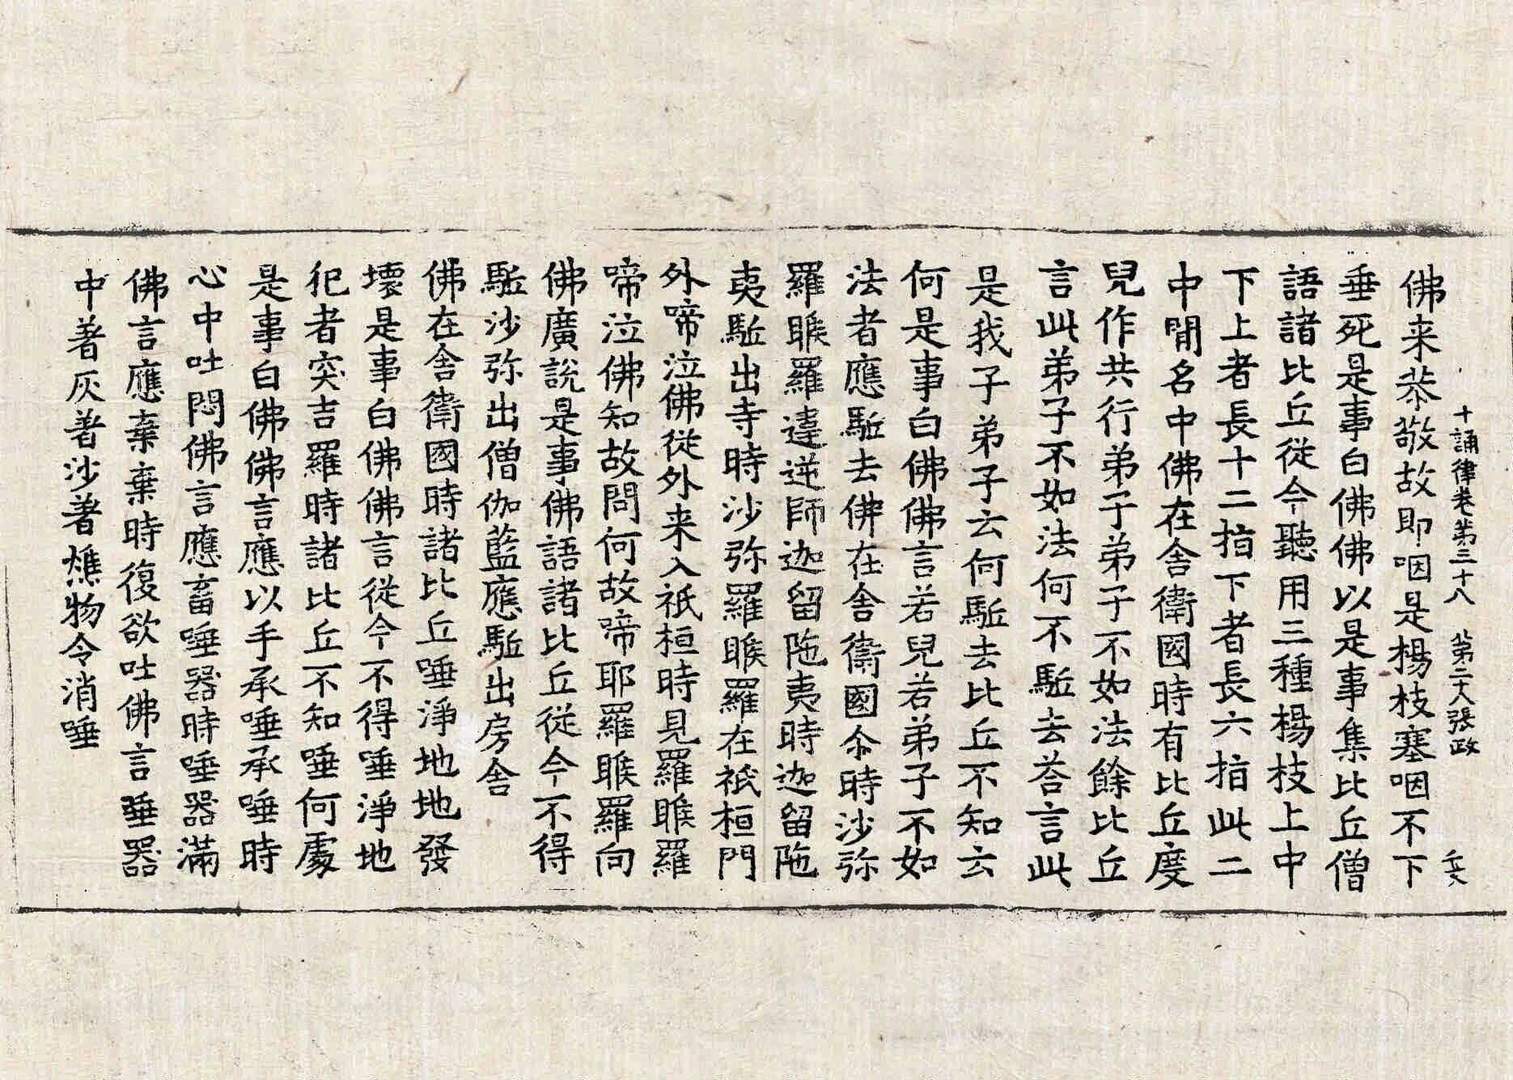 十誦律卷第三十八 第二十八張 政
佛来恭敬故即咽是楊枝塞咽不下
垂死是事白佛佛以是事集比丘僧
語諸比丘從今聽用三種楊枝上中
下上者長十二指下者長六指此二
中閒名中佛在舍衛國時有比丘度
兒作共行弟子弟子不如法餘比丘
言此弟子不如法何不駈去荅言此
是我子弟子云何駈去比丘不知云
何是事白佛佛言若兒若弟子不如
法者應駈去佛在舍衛國尒時沙弥
羅睺羅違逆師迦留陁夷時迦留陁
夷駈出寺時沙弥羅睺羅在祇桓門
外啼泣佛從外来入祇桓時見羅睺羅
啼泣佛知故問何故啼耶羅睺羅向
佛廣說是事佛語諸比丘從今不得
駈沙弥出僧伽藍應駈出房舍
佛在舍衛國時諸比丘唾淨地地發
壞是事白佛佛言從今不得唾淨地
犯者突吉羅時諸比丘不知唾何處
是事白佛佛言應以手承唾承唾時
心中吐悶佛言應畜唾器時唾器滿
佛言應棄棄時復欲吐佛言唾器
中著灰著沙著燋物令消唾